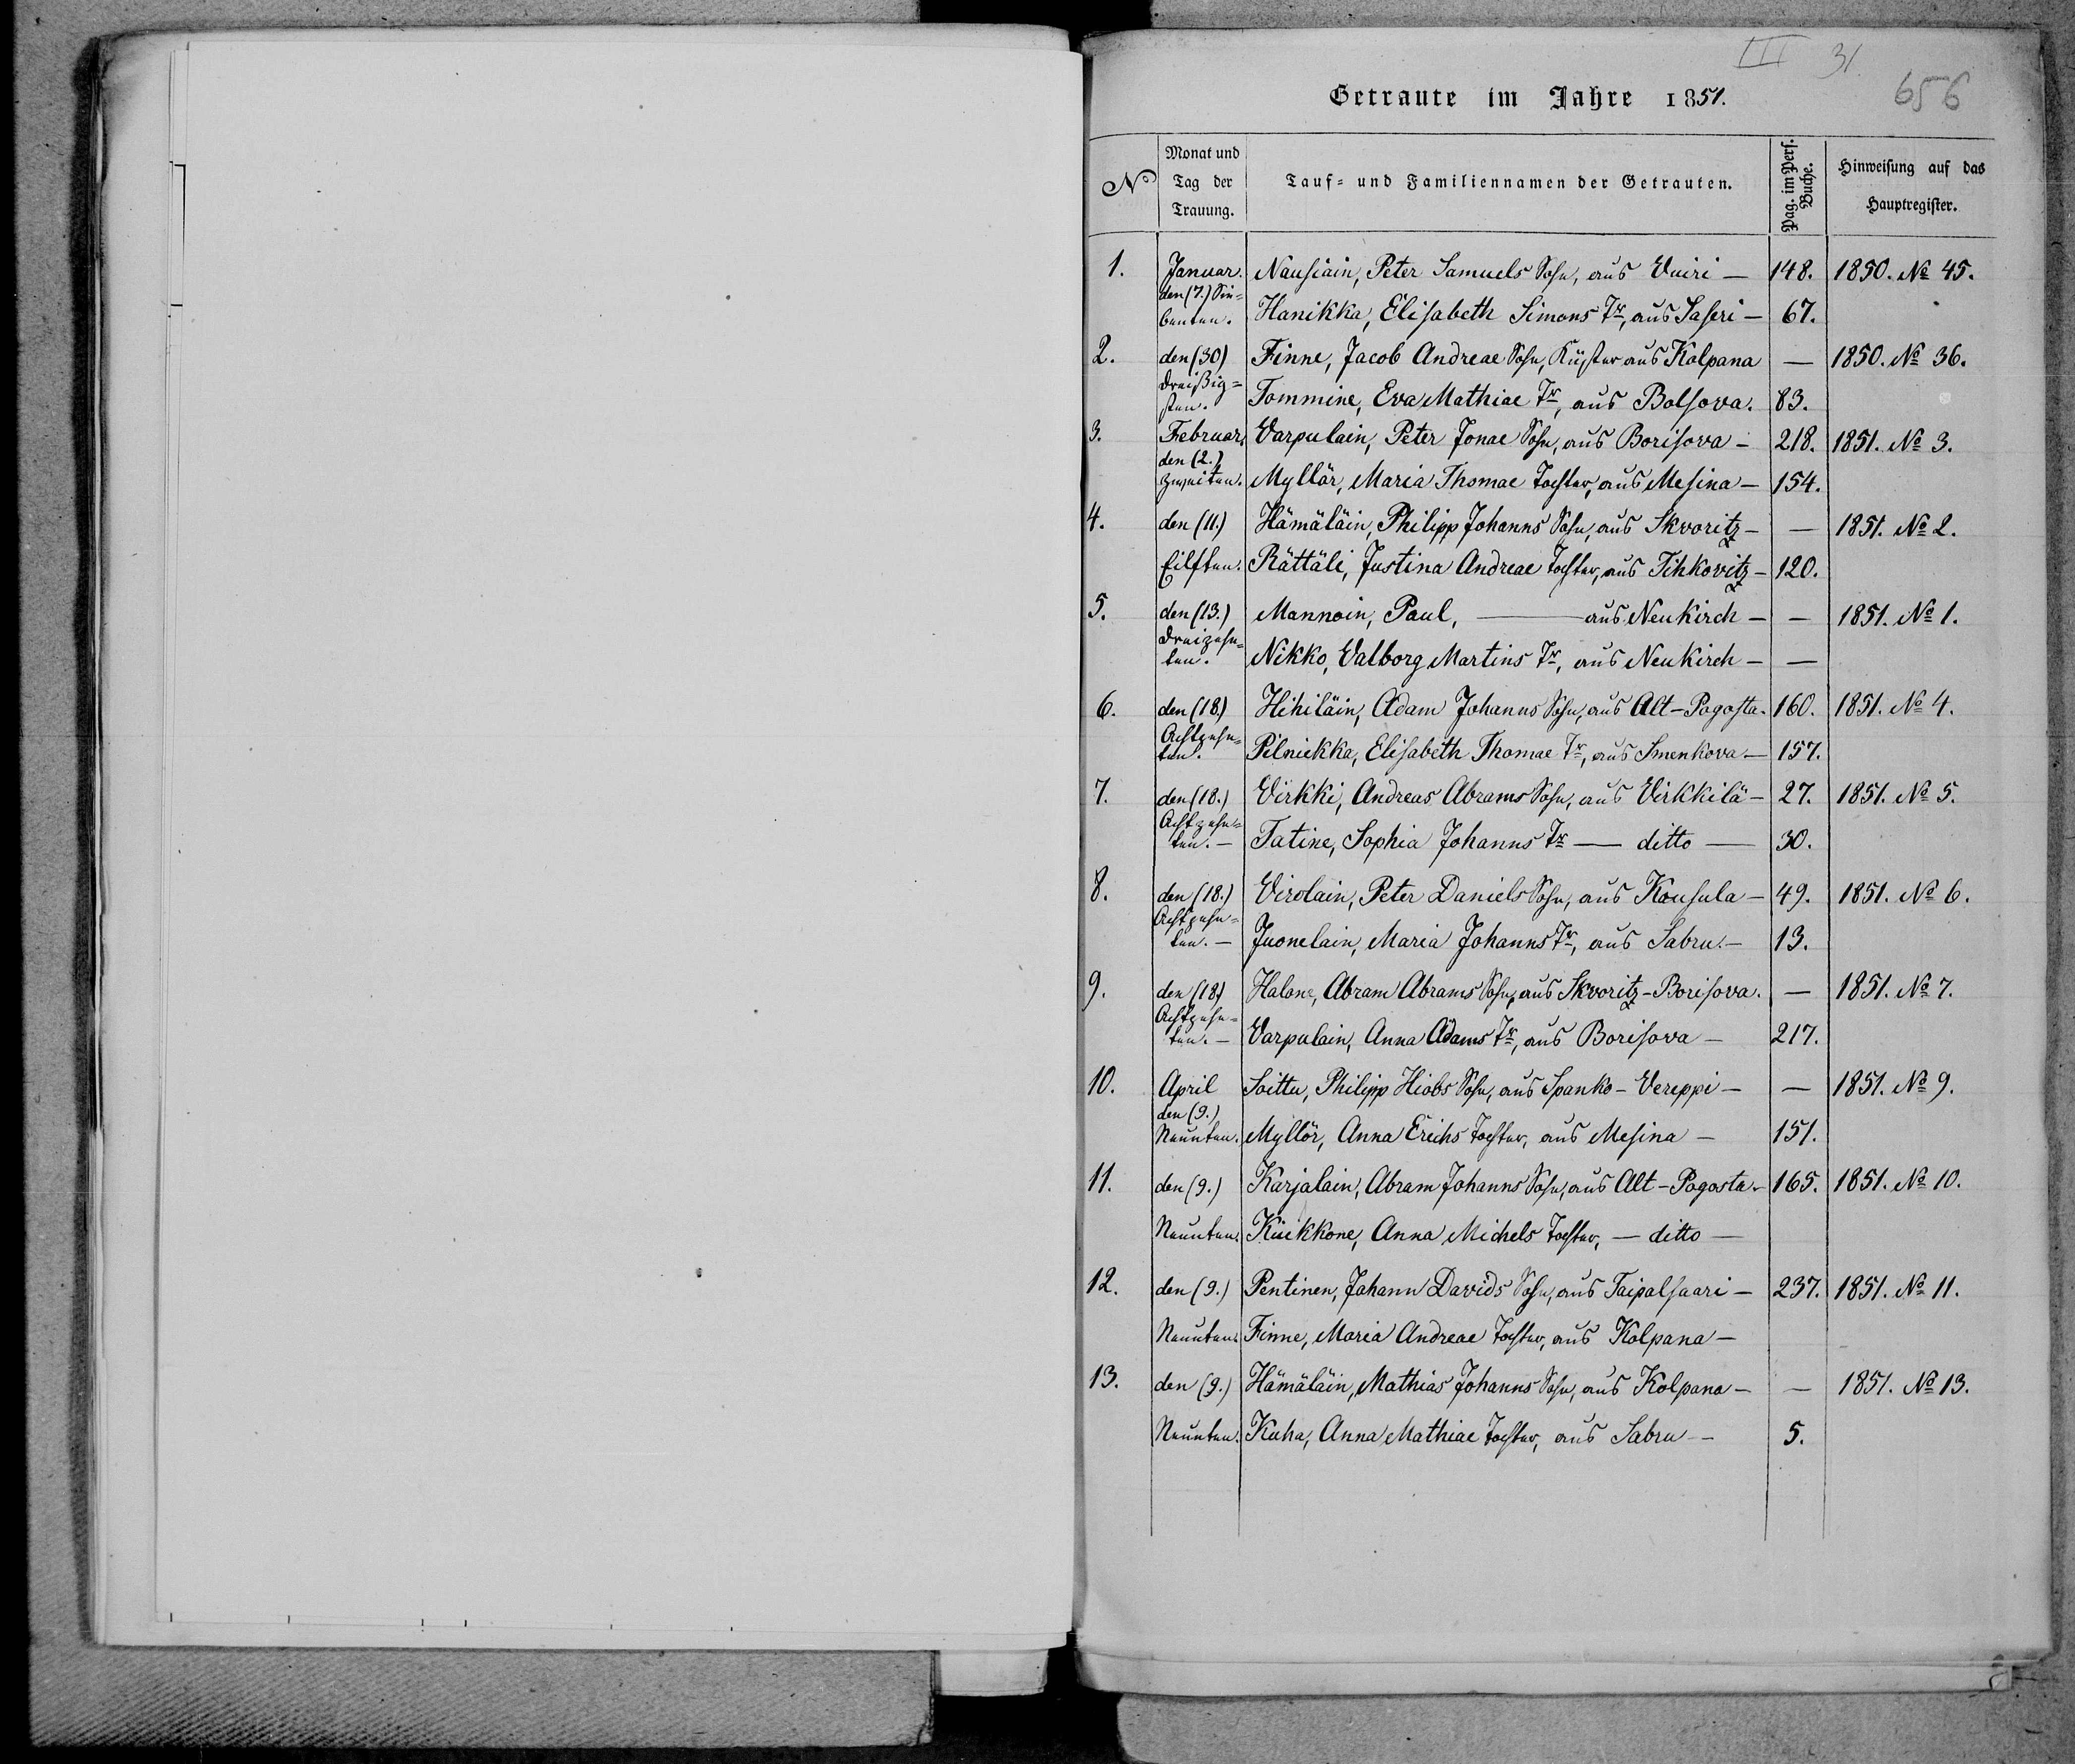 III 31.
656
Getraute im Jahre 1851.
No Monat und Tag der Trauung. Tauf- und Familiennamen der Getrauten. Pag. im Pers. Buche. Hinweisung auf das Hauptregister.
1. Januar. Nausiain, Peter Samuels Sohn, aus Vuiri — 148. 1850. No 45.
den (7.) Sie-
benten. Hanikka, Elisabeth Simons Tr, aus Saseri — 67.
2. den (30) Finne, Jacob Andreae Sohn, Küster aus Kolpana — 1850. No 36.
dreißig-
sten. Tommine, Eva Mathiae Tr, aus Bolsova. 83.
3. Februar, Varpulain, Peter Jonae Sohn, aus Borisova — 218. 1851. No 3.
den (2.)
zweiten. Myllär, Maria Thomae Tochter, aus Mesina — 154.
4. den (11.) Hämäläin, Philipp Johanns Sohn, aus Skvoritz — — 1851. No 2.
Eilften. Rättäli, Justina Andreae Tochter, aus Tihkovitz — 120.
5. den (13.) Mannoin, Paul, — aus Neukirch — — 1851. No 1.
dreizehn-
ten. Nikko, Valborg Martins Tr, aus Neukirch — —
6. den (18.) Hihiläin, Adam Johanns Sohn, aus Alt-Pogosta. 160. 1851. No 4.
Achtzehn-
ten. Pilnickka, Elisabeth Thomae Tr, aus Smenkova — 157.
7. den (18.) Virkki, Andreas Abrams Sohn, aus Virkkilä — 27. 1851. No 5.
Achtzehn-
ten. — Tatine, Sophia Johanns Tr — ditto — 30.
8. den (18.) Virolain, Peter Daniels Sohn, aus Kousula — 49. 1851. No 6.
Achtzehn-
ten. — Juonelain, Maria Johanns Tr, aus Sabru. — 13.
9. den (18) Halone, Abram Abrams Sohn, aus Skvoritz-Borisova. — 1851. No 7.
Achtzehn-
ten. — Varpulain, Anna Adams Tr, aus Borisova — 217.
10. April Soittu, Philipp Hiobs Sohn, aus Spanko-Vereppi — — 1851. No 9.
den (9.)
Neunten. Myllör, Anna Erichs Tochter, aus Mesina — 151.
11. den (9.) Karjalain, Abram Johanns Sohn, aus Alt-Pogosta. 165. 1851. No 10.
Neunten. Kuikkone, Anna Michels Tochter, — ditto —
12. den (9.) Pentinen, Johann Davids Sohn, aus Taipalsaari — 237. 1851. No 11.
Neunten. Finne, Maria Andreae Tochter, aus Kolpana —
13. den (9.) Hämäläin, Mathias Johanns Sohn, aus Kolpana — — 1851. No 13.
Neunten. Kuha, Anna Mathiae Tochter, aus Sabru — 5.